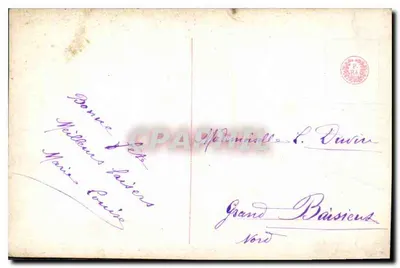 Bonne fête
Meilleurs baisers
Marie Louise
Mademoiselle L. Duvin
Grand Baisieux
Nord